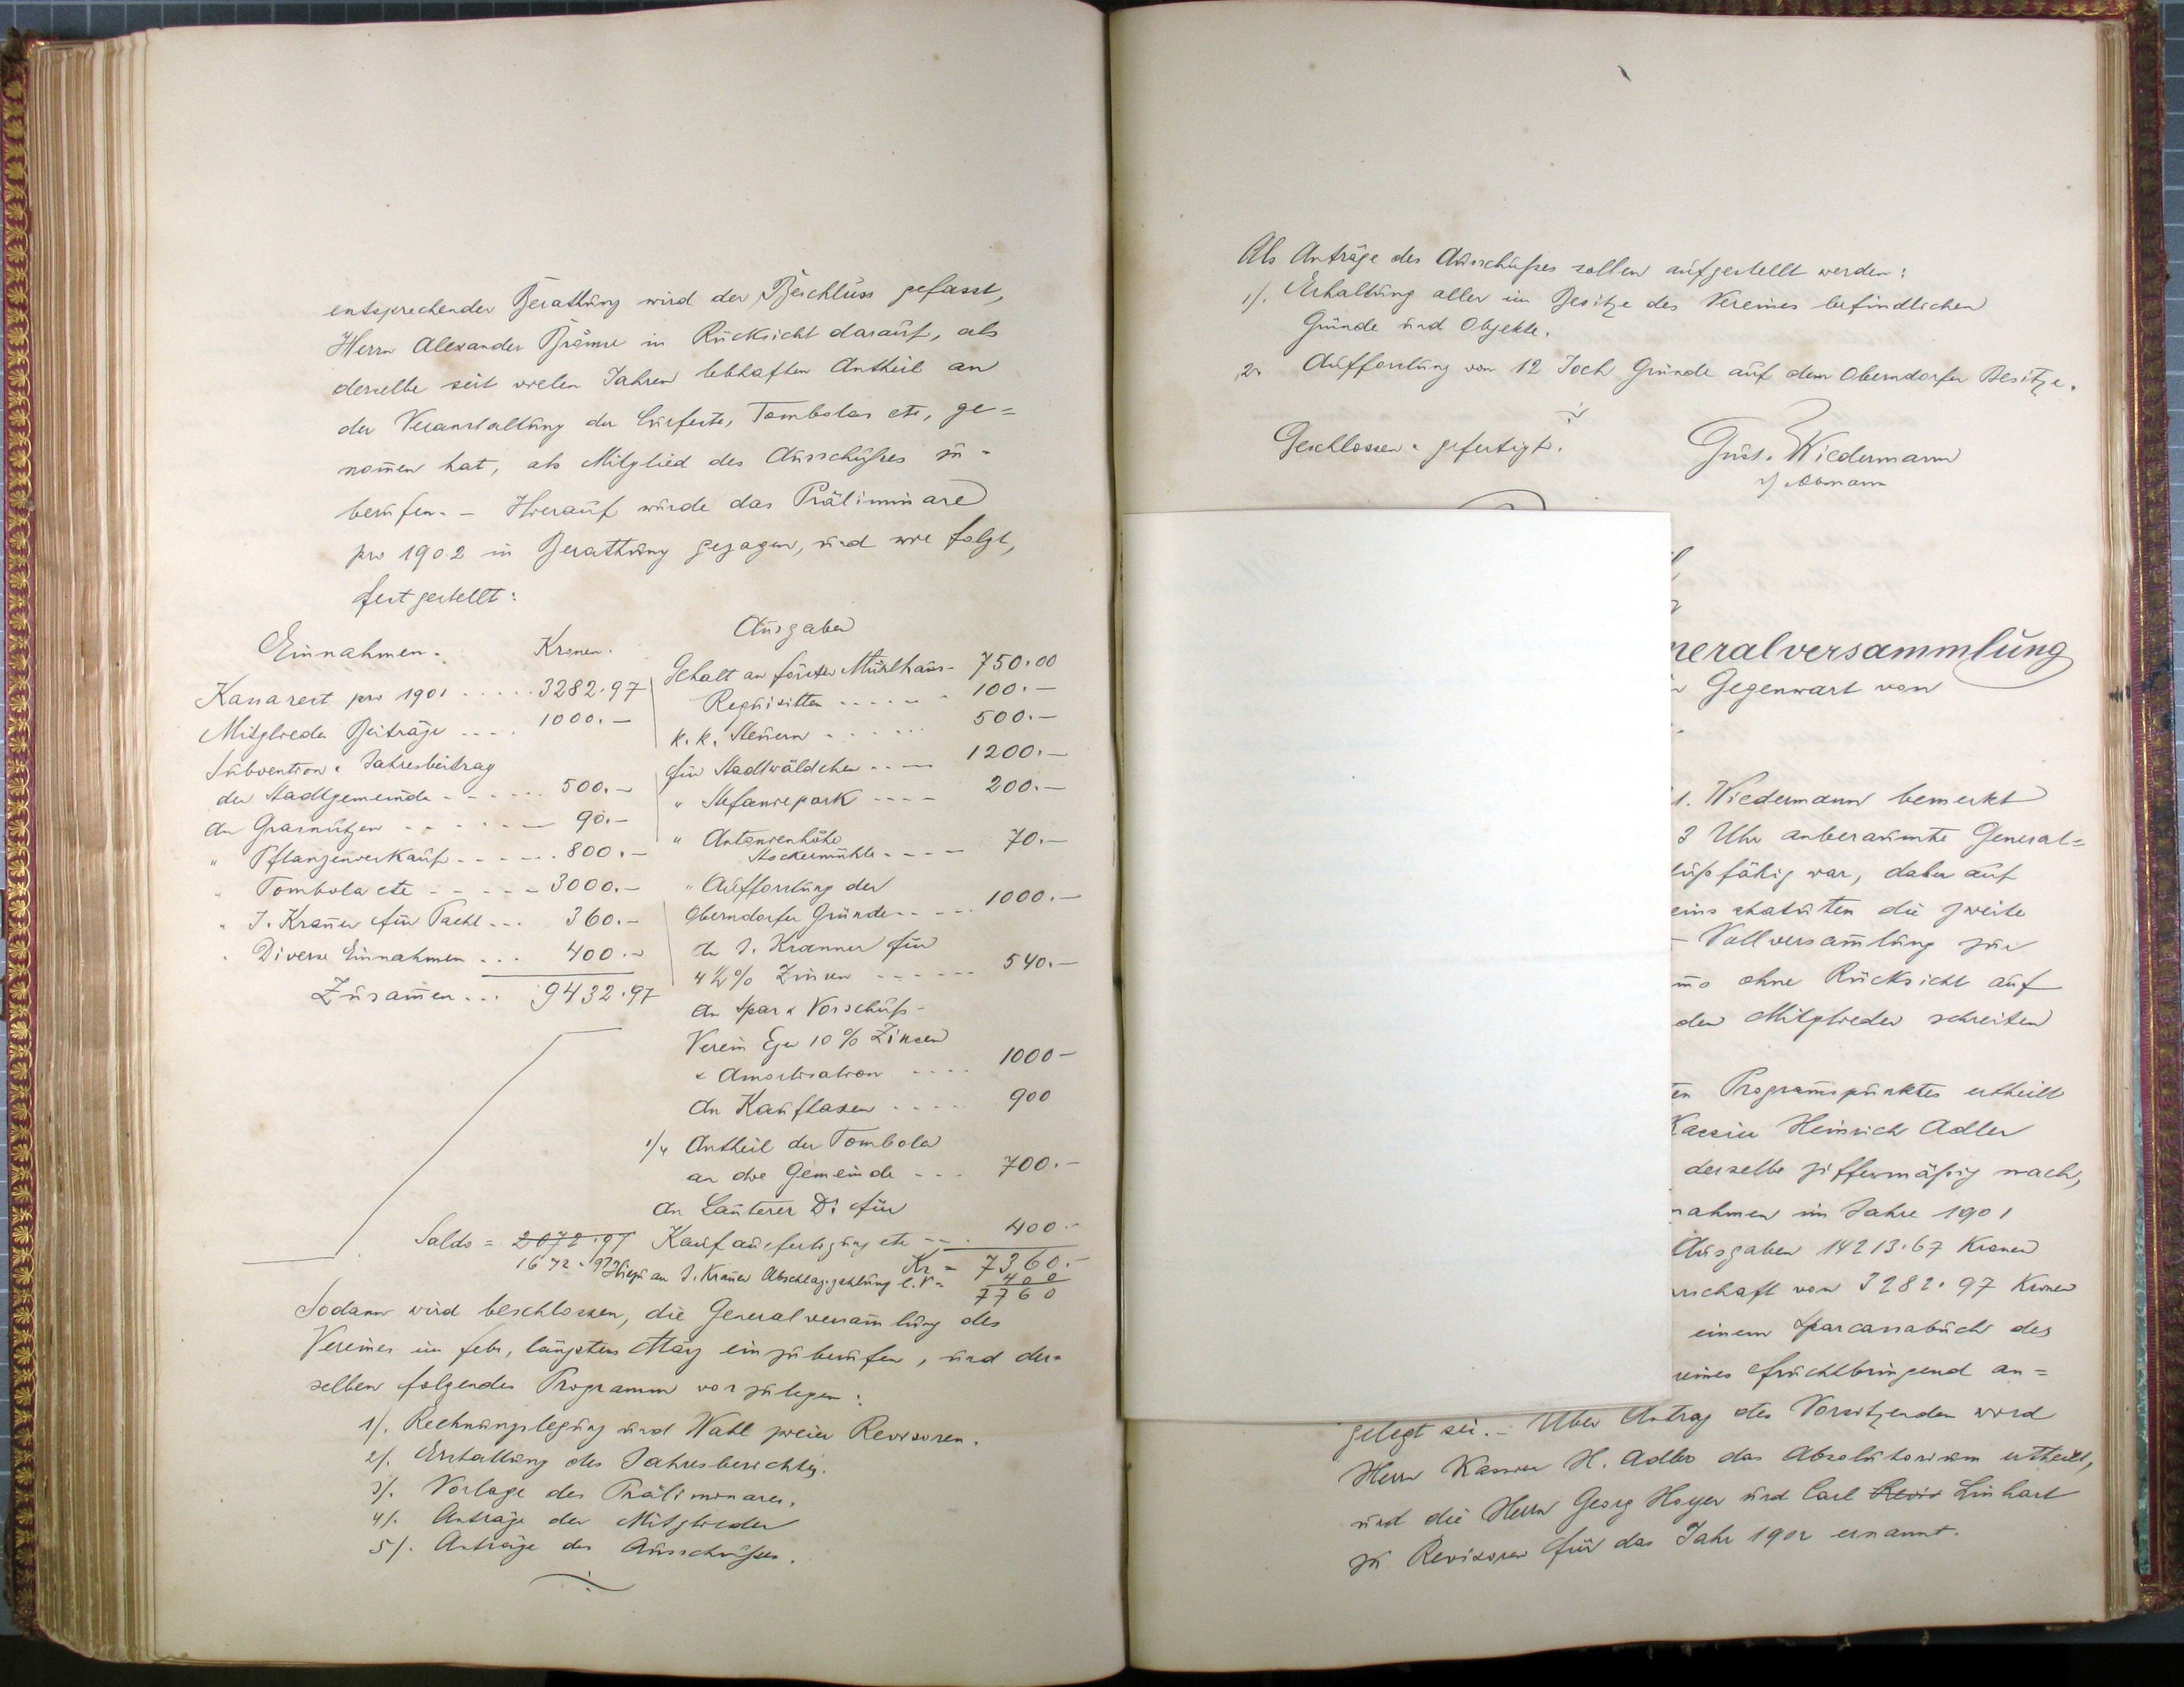 entsprechender Berathung wird der Beschluss gefasst,
Herrn Alexander Brömse in Rücksicht darauf, als
derselbe seit vielen Jahren lebhaften Antheil an
der Veranstaltung der Curfeste, Tombolas etc, ge=
nom̄en hat, als Mitglied des Ausschußes zu
berufen. – Hierauf wurde das Präliminare
pro 1902 in Berathung gezogen, und wie folgt,
festgestellt:
Einnahmen. Kronen.
Kassarest pro 1901 ..... 3282.97
Mitglieder Beiträge .... 1000.–
Subvention & Jahresbeitrag
der Stadtgemeinde ..... 500.–
An Grasnutzen ..... 90.–
" Pflanzenverkauf ..... 800.–
" Tombola etc ..... 3000.–
" J. Kraner für Pacht ... 360.–
" Diverse Einnahmen ... 400.–
Zusam̄en ... 9432.97
Ausgaben
Gehalt an Förster Mühlhans - 750.00
Requisitten ..... 100.–
k. k. Steuern ..... 500.–
für Stadtwäldchen .... 1200.–
" Stefaniepark .... 200.–
" Antonienhöhe
Stöckermühle .... 70.–
" Aufforstung der
Oberndorfer Gründe .... 1000.–
An J. Kranner für
4½% Zinsen ..... 540.–
An Spar & Vorschuß-
Verein Eger 10% Zinsen
& Amortisation .... 1000–
An Kauftaxen .... 900
1/4 Antheil der Tombola
an die Gemeinde ... 700.–
An Lauterer Dr für
Kaufausfertigung etc ... 400.–
Saldo = 2072.97 Kr = 7360.–
1672.97 Hiezu an J. Kraner Abschlagszahlung l. V = 400
7760
Sodann wird beschlossen, die Generalversam̄lung des
Vereines im Febr, längstens März einzuberufen, und der=
selben folgendes Programm vorzulegen:
1/. Rechnungslegung und Wahl zweier Revisoren.
2/. Erstattung des Jahresberichtes.
3/. Vorlage des Präliminares.
4/. Anträge der Mitglieder
5/. Anträge des Ausschußes.
Als Anträge des Ausschußes sollen aufgestellt werden:
1/. Erhaltung aller im Besitze des Vereines befindlichen
Gründe und Objekte.
2. Aufforstung von 12 Joch Gründe auf dem Oberndorfer Besitze.
Geschlossen & gefertigt.
Gust. Wiedermann
Obmann
neralversammlung
Gegenwart von
t. Wiedermann bemerkt
3 Uhr anberaumte General=
lußfähig war, daher auf
eins statuten die zweite
– Vollversam̄lung zur
mo ohne Rücksicht auf
den Mitglieder schreiten
ten Program̄spunktes ertheilt
Kassier Heinrich Adler
derselbe ziffermäßig nach,
nahmen im Jahre 1901
Ausgaben 14213.67 Kronen
rschaft von 3282.97 Kronen
einem Sparcassabuch des
reines fruchtbringend an=
gelegt sei. – Über Antrag des Vorsitzenden wird
Herrn Kassier H. Adler das Absolutorium ertheilt,
und die Herrn Georg Hoyer und Carl Revis Linhart
zu Revisoren für das Jahr 1902 ernannt.